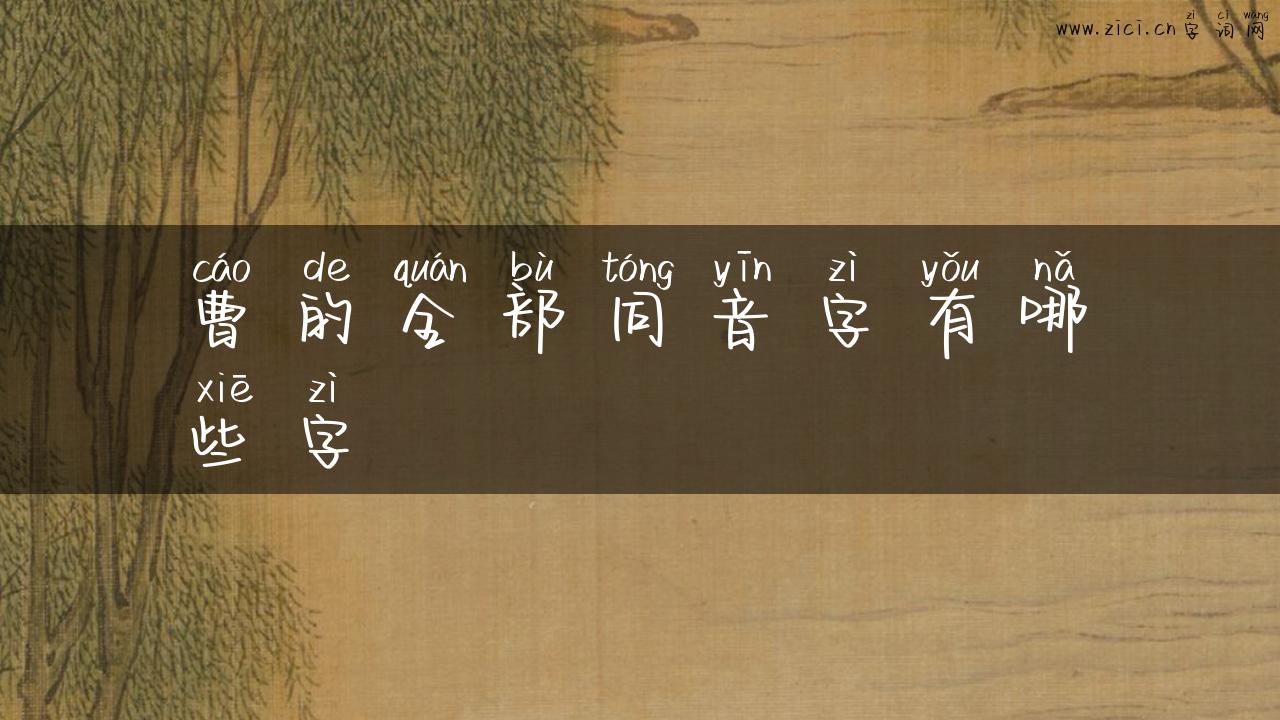 zì cí wǎng
www.zici.cn字词网
cáo de quán bù tóng yīn zì yǒu nǎ
曹的全部同音字有哪
xiē zì
些字